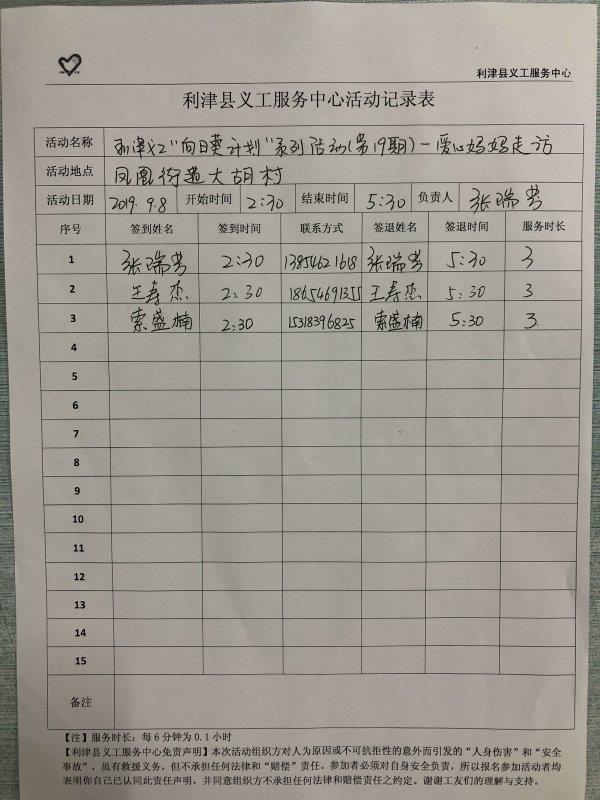 利津县义工服务中心
利津县义工服务中心活动记录表
活动名称 利津义工"向日葵计划"系列活动(第19期)-爱心妈妈走访
活动地点 凤凰街道大胡村
活动日期 2019.9.8 开始时间 2:30 结束时间 5:30 负责人 张瑞芳
序号 签到姓名 签到时间 联系方式 签退姓名 签退时间 服务时长
1 张瑞芳 2:30 13854621618 张瑞芳 5:30 3
2 王寿杰 2:30 18654691355 王寿杰 5:30 3
3 索盛楠 2:30 15318396825 索盛楠 5:30 3
4
5
6
7
8
9
10
11
12
13
14
15
备注
【注】服务时长：每6分钟为0.1小时
【利津县义工服务中心免责声明】本次活动组织方对人为原因或不可抗拒性的意外而引发的“人身伤害”和“安全
事故”，虽有救援义务，但不承担任何法律和“赔偿”责任。参加者必须对自身安全负责，所以报名参加活动者均
表明你自己已认同此责任声明，并同意组织方不承担任何法律和赔偿责任之约定。谢谢工友们的理解与支持。